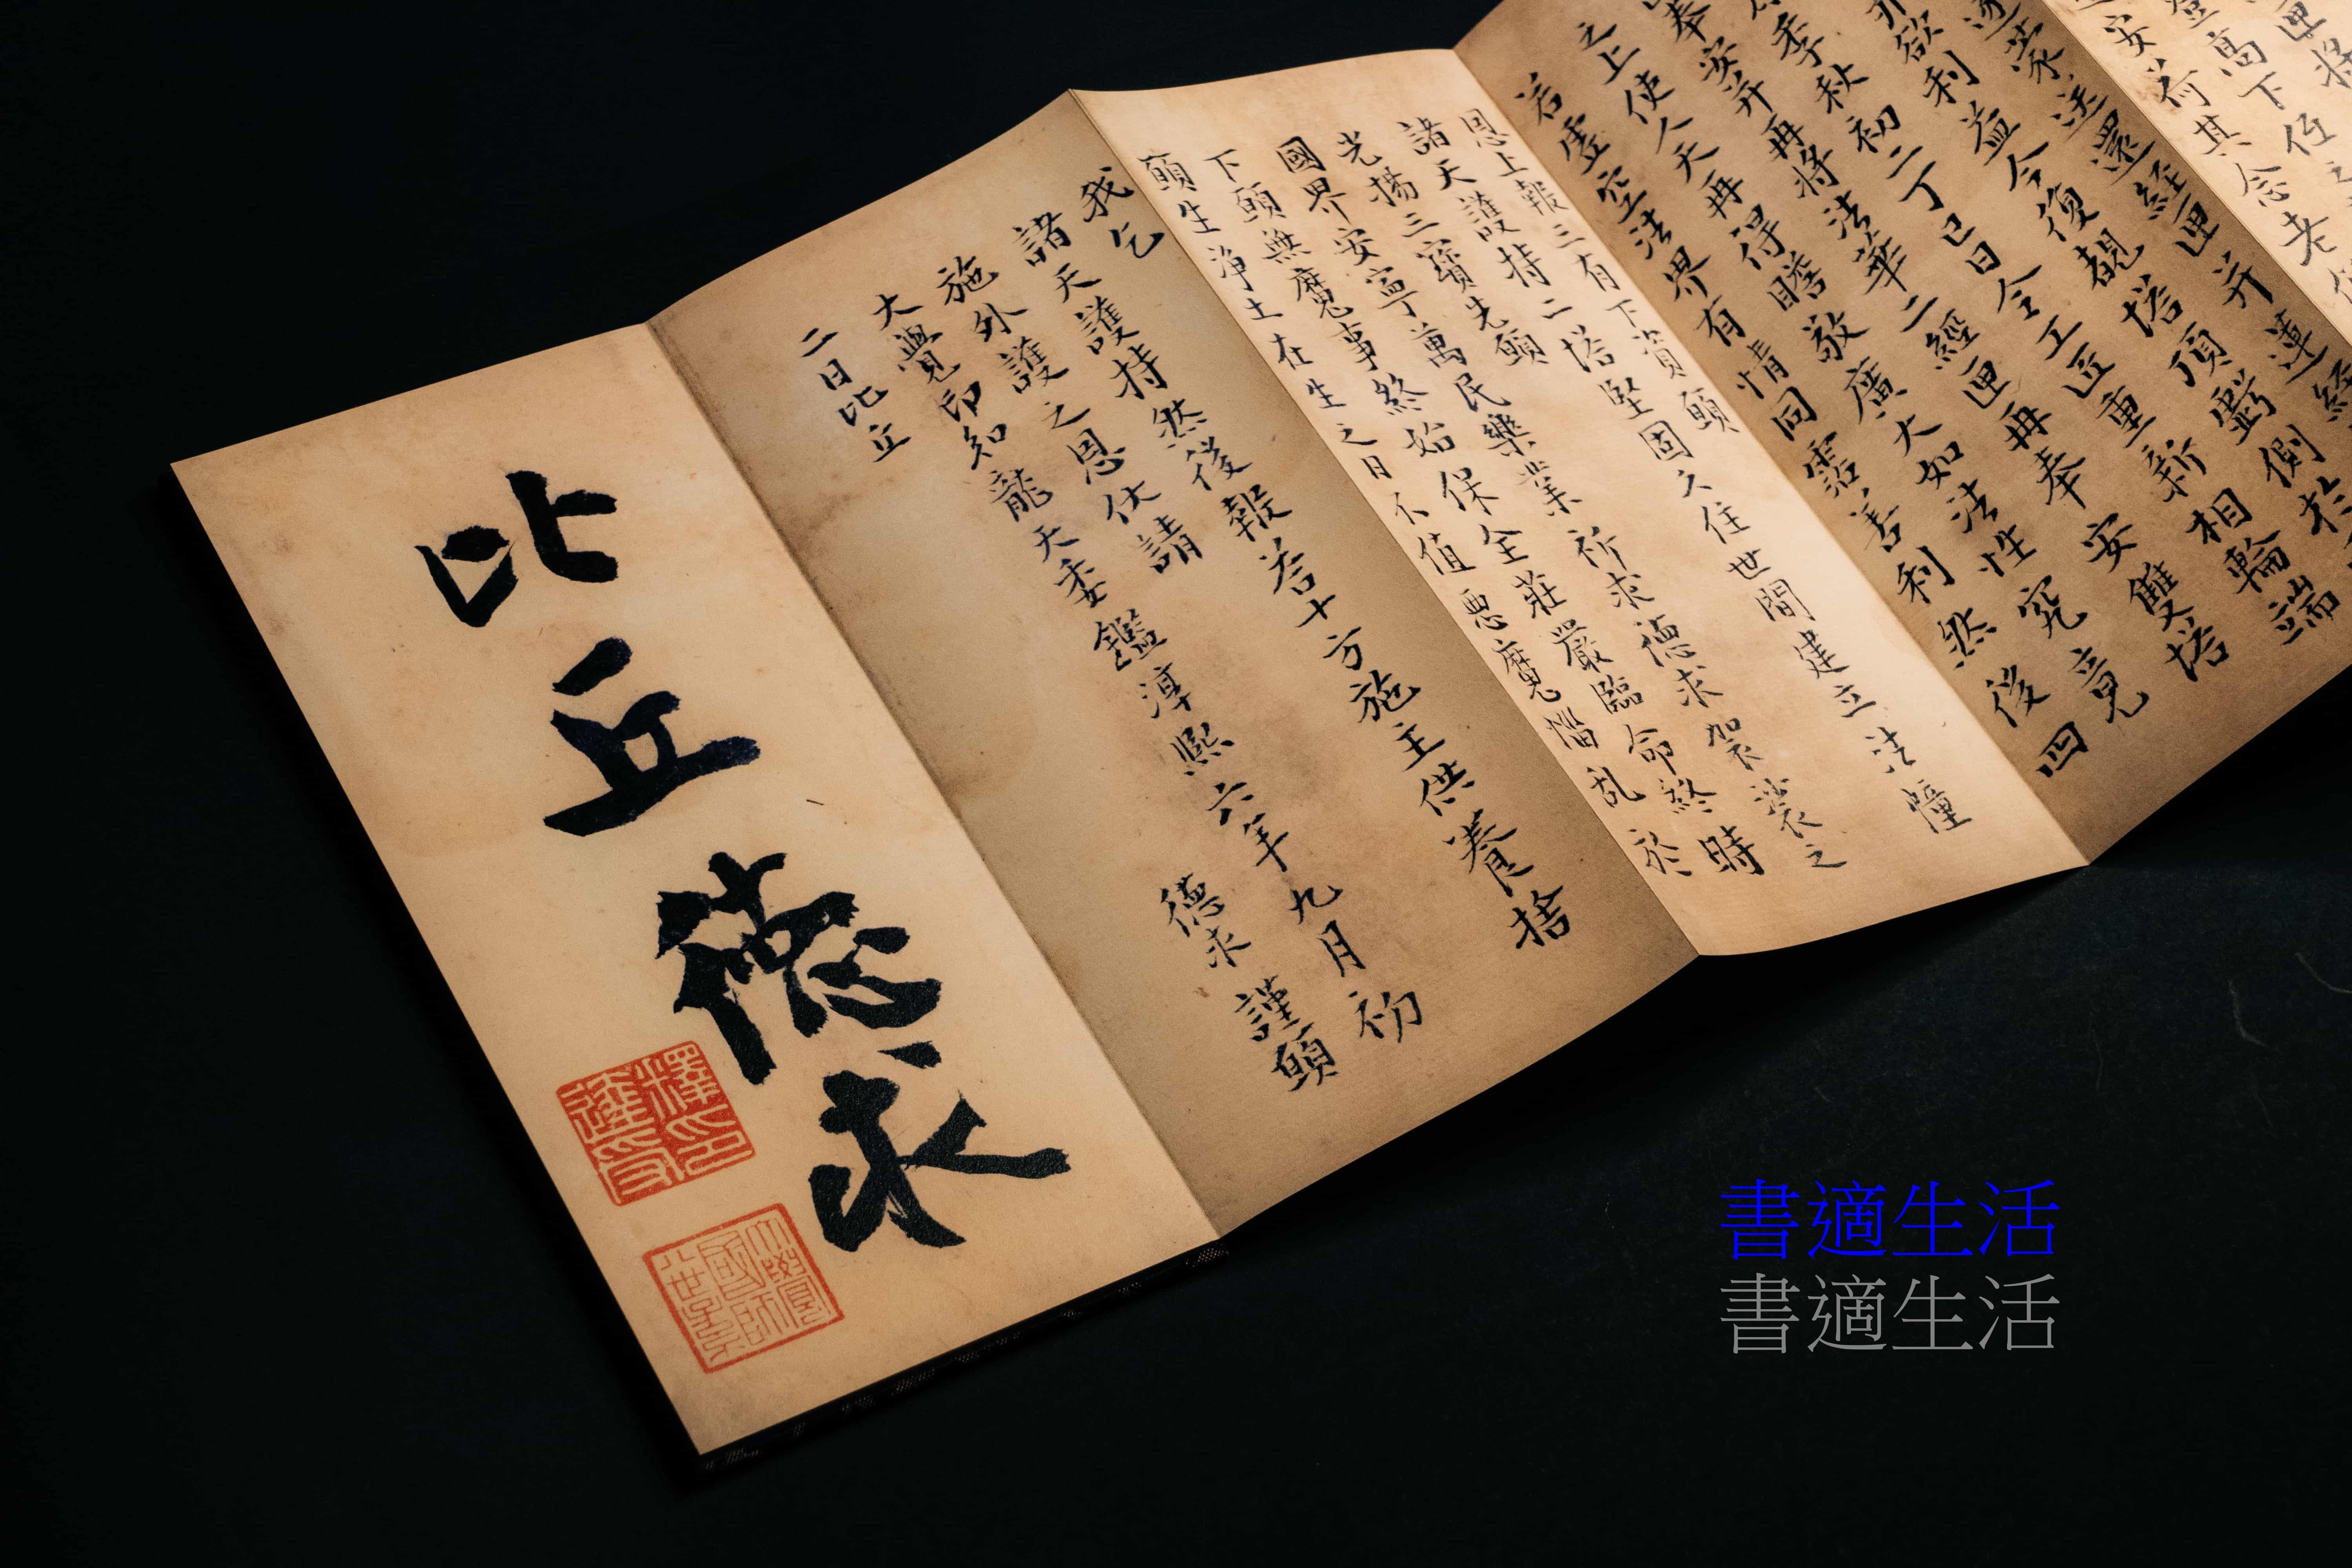 登高下任之
安荷其念老
遂蒙送還經匣并蓮經
欲利益今復覩塔頂虧側於
季秋初二丁巳日令工匠重新相輪端
奉安并再將法華二經匣再奉安雙塔
之上使人天再得瞻敬廣大如法性究竟
若虛空法界有情同霑善利然後四
恩上報三有下資願
諸天護持二塔堅固久住世間建立法幢
光揚三寶先願
國界安寧萬民樂業祈求德求袈裟之
下願無魔事終始保全莊嚴臨命終時
願生淨土在生之日不值惡魔惱乱於
我乞
諸天護持然後報荅十方施主供養捨
施外護之恩仗請
大覺印知龍天委鑑淳熙六年九月初
二日比丘 德求 謹願
比丘德求
書適生活
書適生活